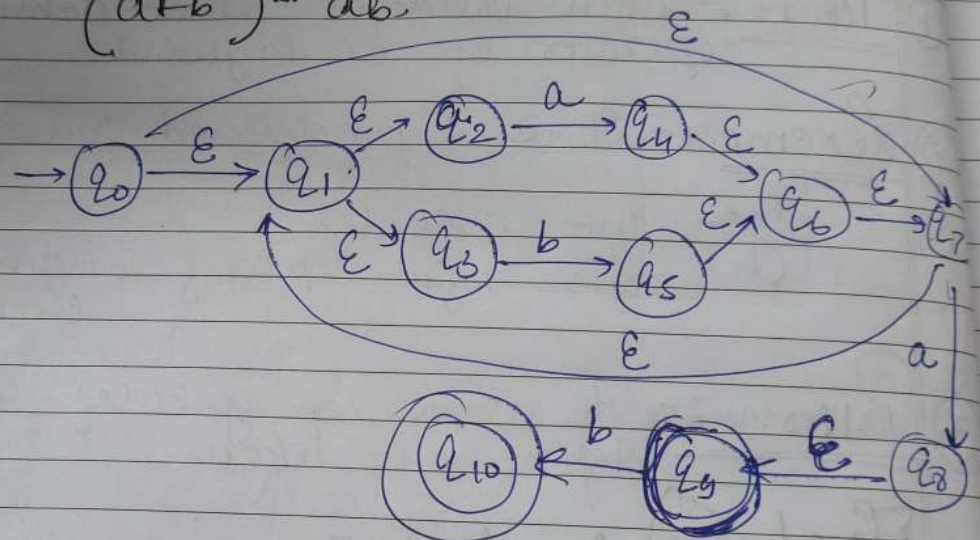 (a+b) ab
ε
ε q2 a q4 ε
q0 ε q1 q6 ε q7
ε q3 b q5 ε
ε a
q10 b q9 ε q8